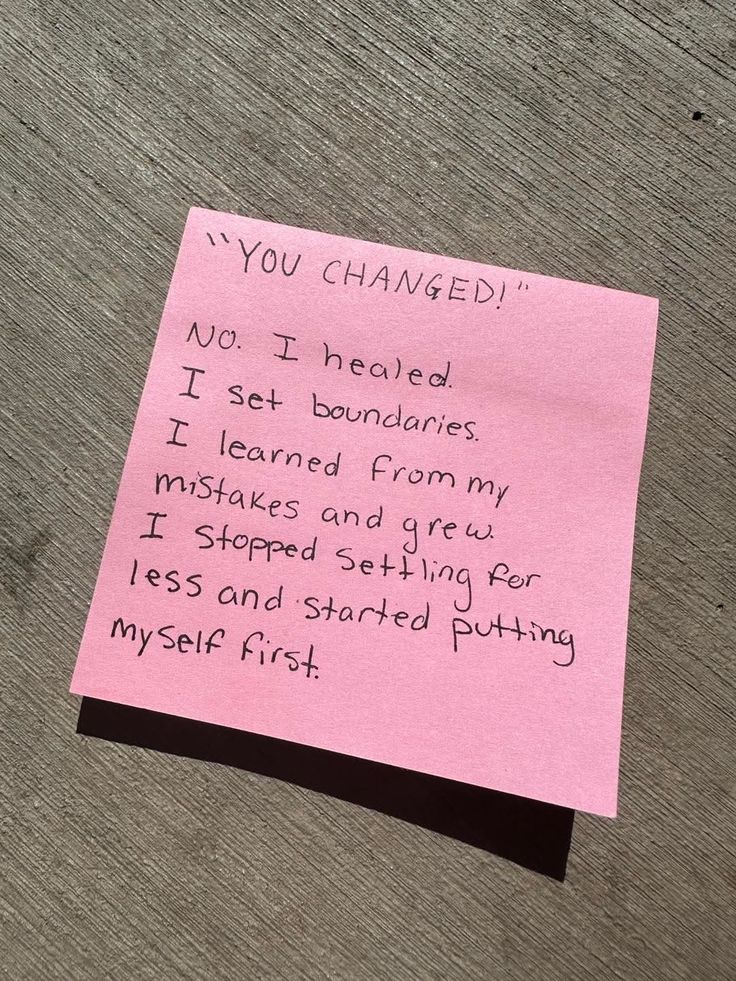 "YOU CHANGED!"
NO. I healed.
I set boundaries.
I learned from my
mistakes and grew.
I stopped settling for
less and started putting
myself first.